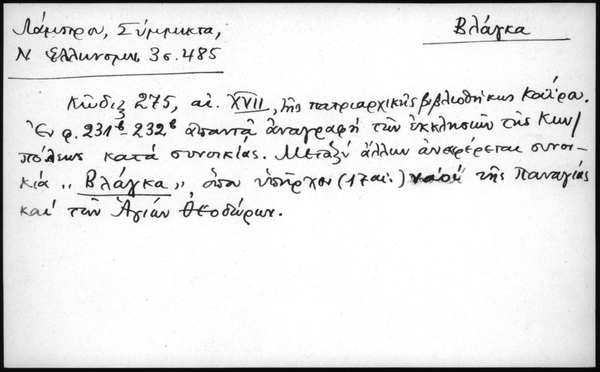 Λάμπρου, Σύμμικτα,
Ν Ελληνομν. 3 σ. 485
Βλάγκα
Κῶδιξ 275, αἰ. XVII, τῆς πατριαρχικῆς βιβλιοθήκης Καΐρου.
Ἐν φ. 231β-232β ἀπαντᾷ ἀναγραφή τῶν ἐκκλησιῶν τῆς Κων/
πόλεως κατά συνοικίας. Μεταξύ ἄλλων ἀναφέρεται συνοι-
κία "Βλάγκα", ὅπου ὑπῆρχον (17 αἰ.) ναοί τῆς Παναγίας
καί τῶν Ἁγίων Θεοδώρων.